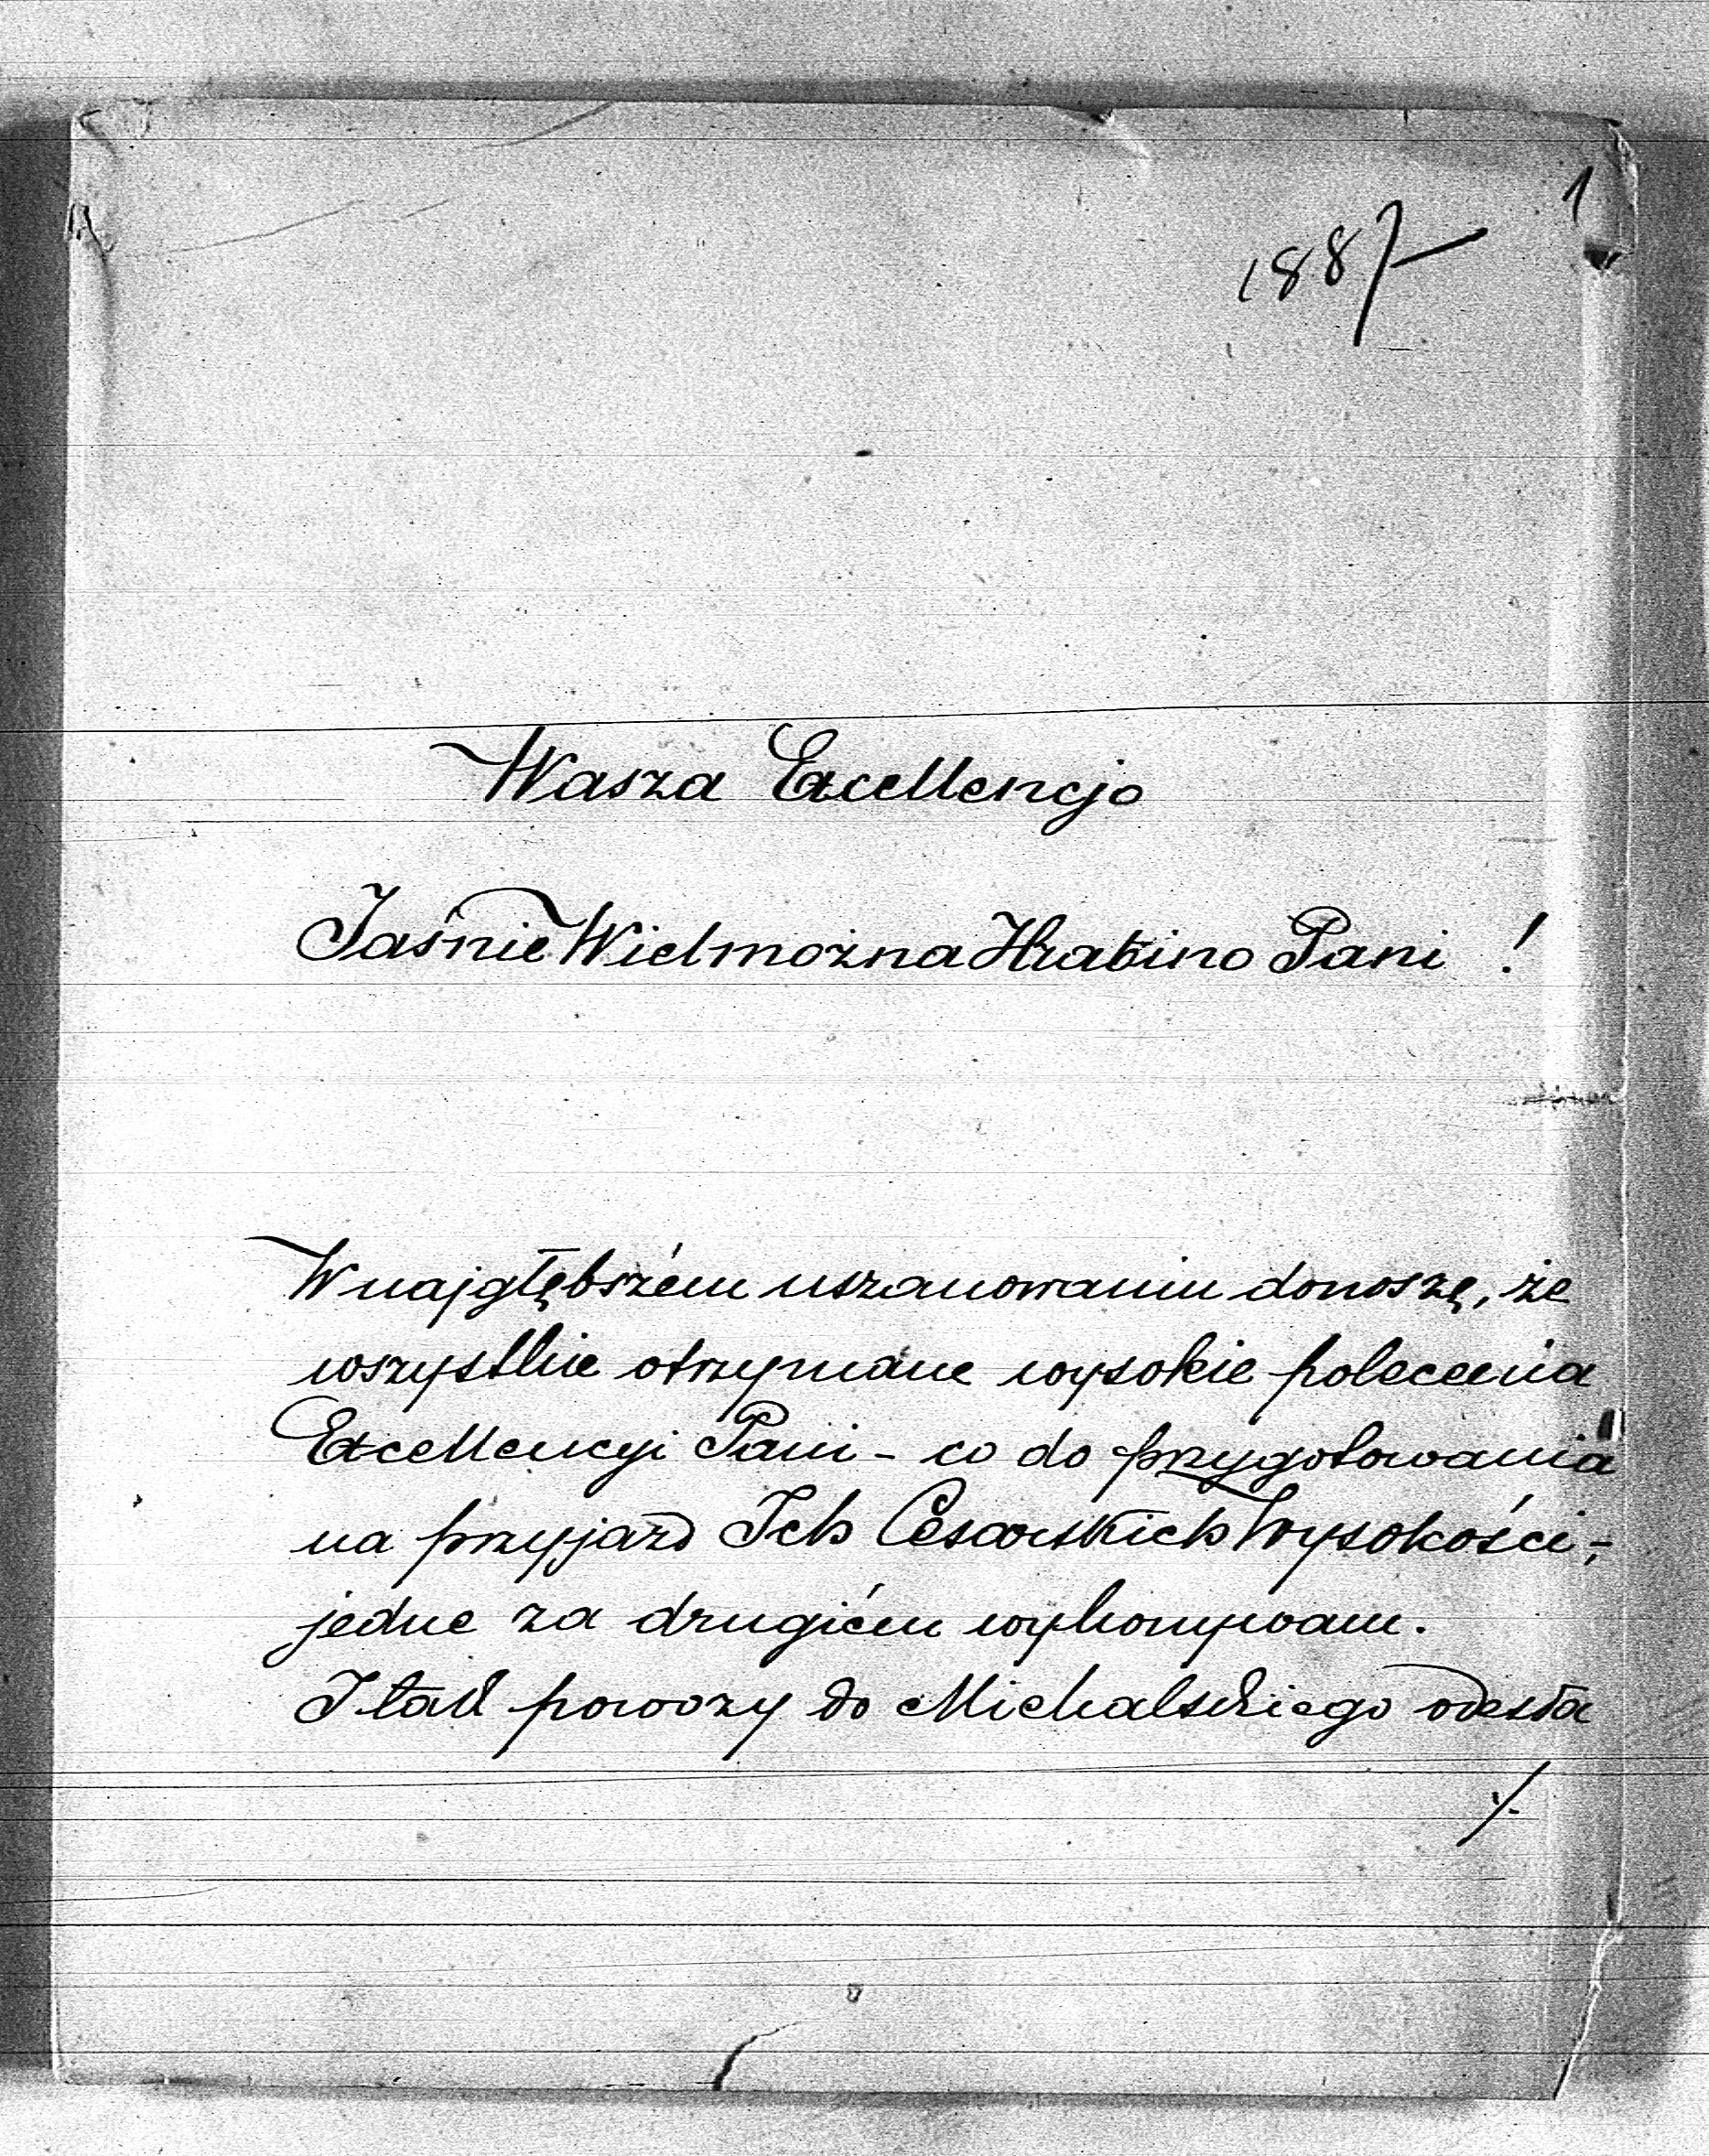 1
1887
Wasza Excellencjo
Jaśnie Wielmożna Hrabino Pani !
W najgłębszém uszanowaniu donoszę, że
wszystkie otrzymane wysokie polecenia
Excellencyi Pani - co do przygotowania
na przyjazd Ich Cesarskich Wysokości,-
jedne za drugiém wykonywam.
I tak powozy do Michalskiego odesła
./.